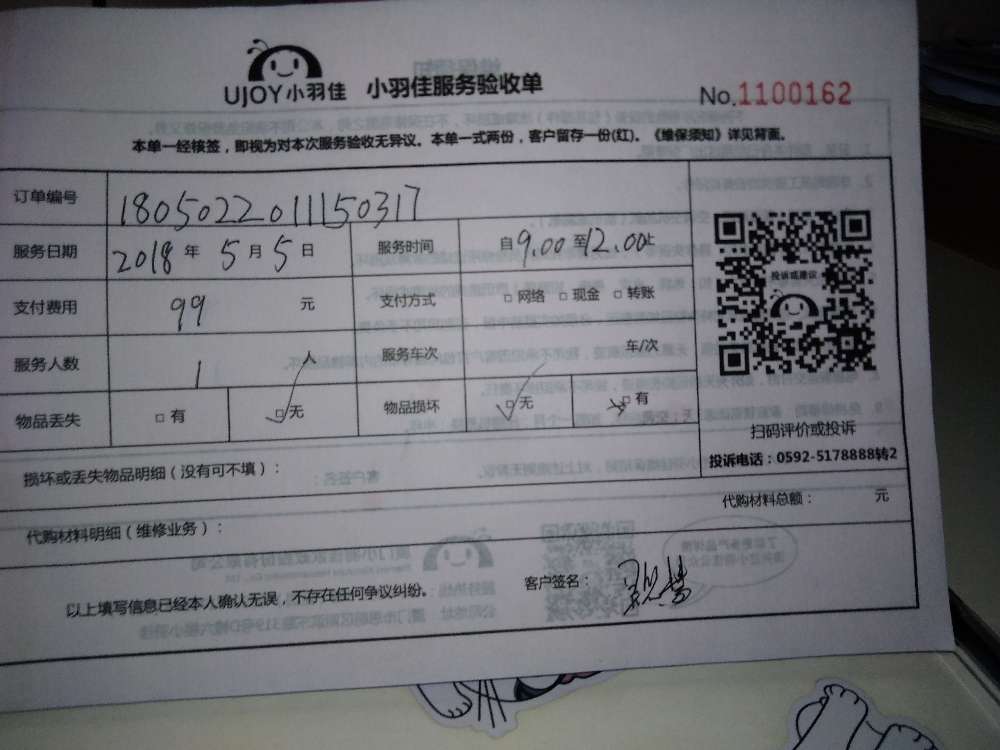 UJOY小羽佳 小羽佳服务验收单
No.1100162
本单一经核签，即视为对本次服务验收无异议。本单一式两份，客户留存一份(红)。《维保须知》详见背面。
订单编号 1805022011150317
服务日期 2018 年 5 月 5 日 服务时间 自9.00至12.00止
支付费用 99 元 支付方式 □ 网络 □ 现金 □ 转账
服务人数 1 人 服务车次 车/次
物品丢失 □ 有 □ 无 物品损坏 □ 无 □ 有
投诉或建议
扫码评价或投诉
投诉电话：0592-5178888转2
损坏或丢失物品明细（没有可不填）：
代购材料总额： 元
代购材料明细（维修业务）：
以上填写信息已经本人确认无误，不存在任何争议纠纷。 客户签名：